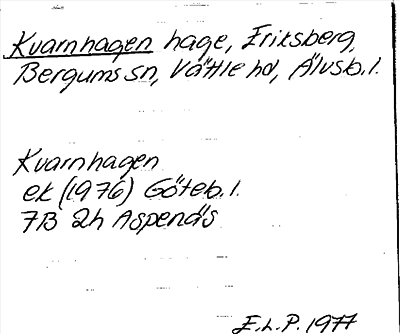 Kvarnhagen hage, Eriksberg,
Bergums sn, Vättle hd, Älvsb. l.
Kvarnhagen
ek (1976) Göteb. l.
7B 2h Aspenäs
E.L.P. 1977